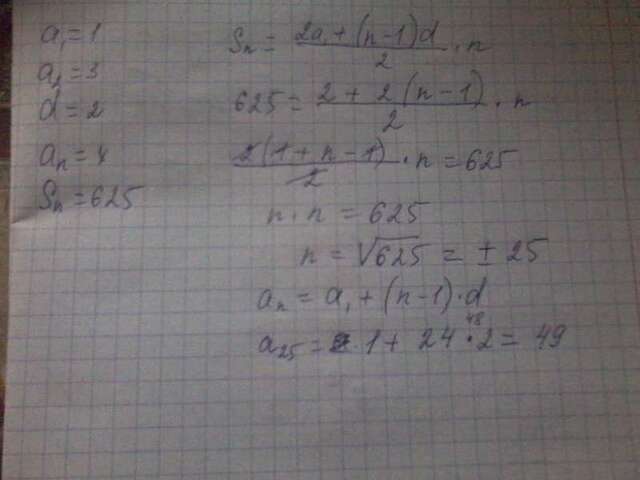 a₁ = 1
a₂ = 3
d = 2
aₙ = 4
Sₙ = 625
Sₙ = (2a₁ + (n-1)d)/2 · n
625 = (2 + 2(n-1))/2 · n
2(1 + n - 1)/2 · n = 625
n · n = 625
n = √625 = ± 25
aₙ = a₁ + (n-1)·d
a₂₅ = 1 + 24 · 2 = 49
48